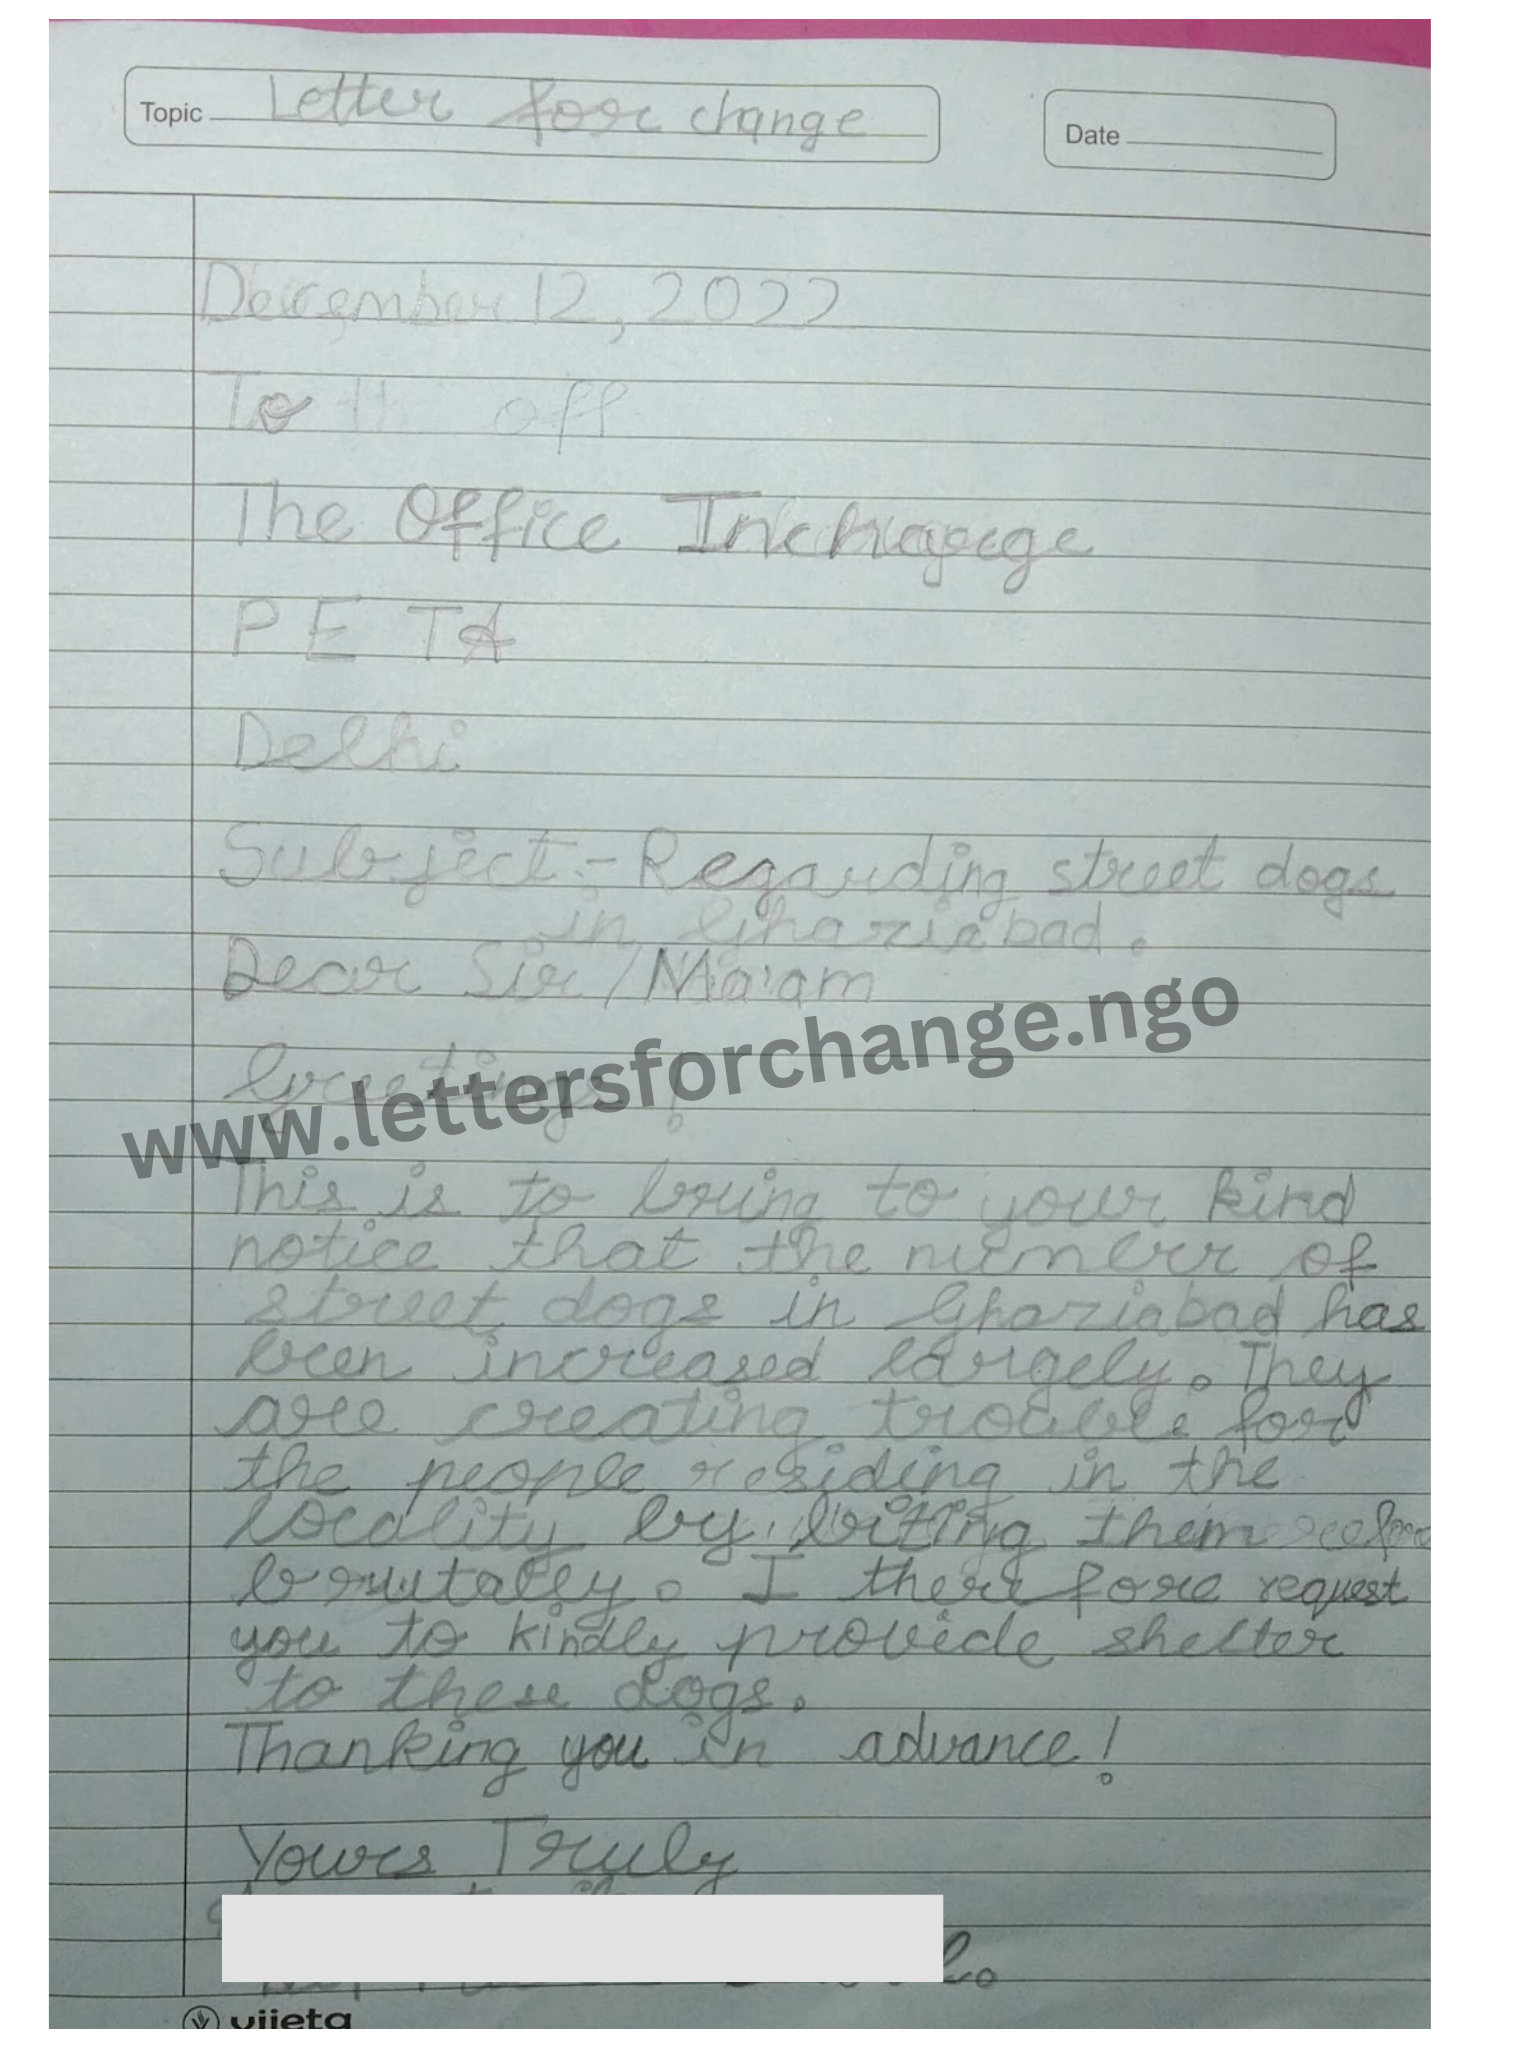 Topic Letter for change
Date
December 12, 2022
To
The Office Incharge
PETA
Delhi
Subject:- Regarding street dogs
in Ghaziabad.
Dear Sir/Ma'am
www.lettersforchange.ngo
Greetings!
This is to bring to your kind
notice that the number of
street dogs in Ghaziabad has
been increased largely. They
are creating trouble for
the people residing in the
locality by biting them
brutally. I therefore request
you to kindly provide shelter
to these dogs.
Thanking you in advance!
Yours Truly
vijeta